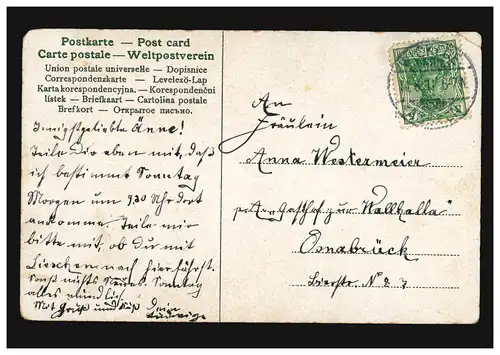 Postkarte — Post card
Carte postale — Weltpostverein
Union postale universelle — Dopisnice
Correspondenzkarte — Levelező-Lap
Karta korespondencyjna. — Korespondenční
lístek — Briefkaart — Cartolina postale
Brefkort — Открытое письмо.
Innigstgeliebte Änne!
Teile Dir eben mit, daß
ich bestimmt Sonntag
Morgen um 9.30 Uhr dort
ankomme. Teile mir
bitte mit, ob Du mit
Lieschen nach hier fährst.
Sonst nichts Neues. Sonntag
alles mündlich.
Mit Gruß und Kuß Dein
An
Fräulein
Anna Westermeier
Gasthof zur Wallhalla"
Osnabrück
Bierstr. No